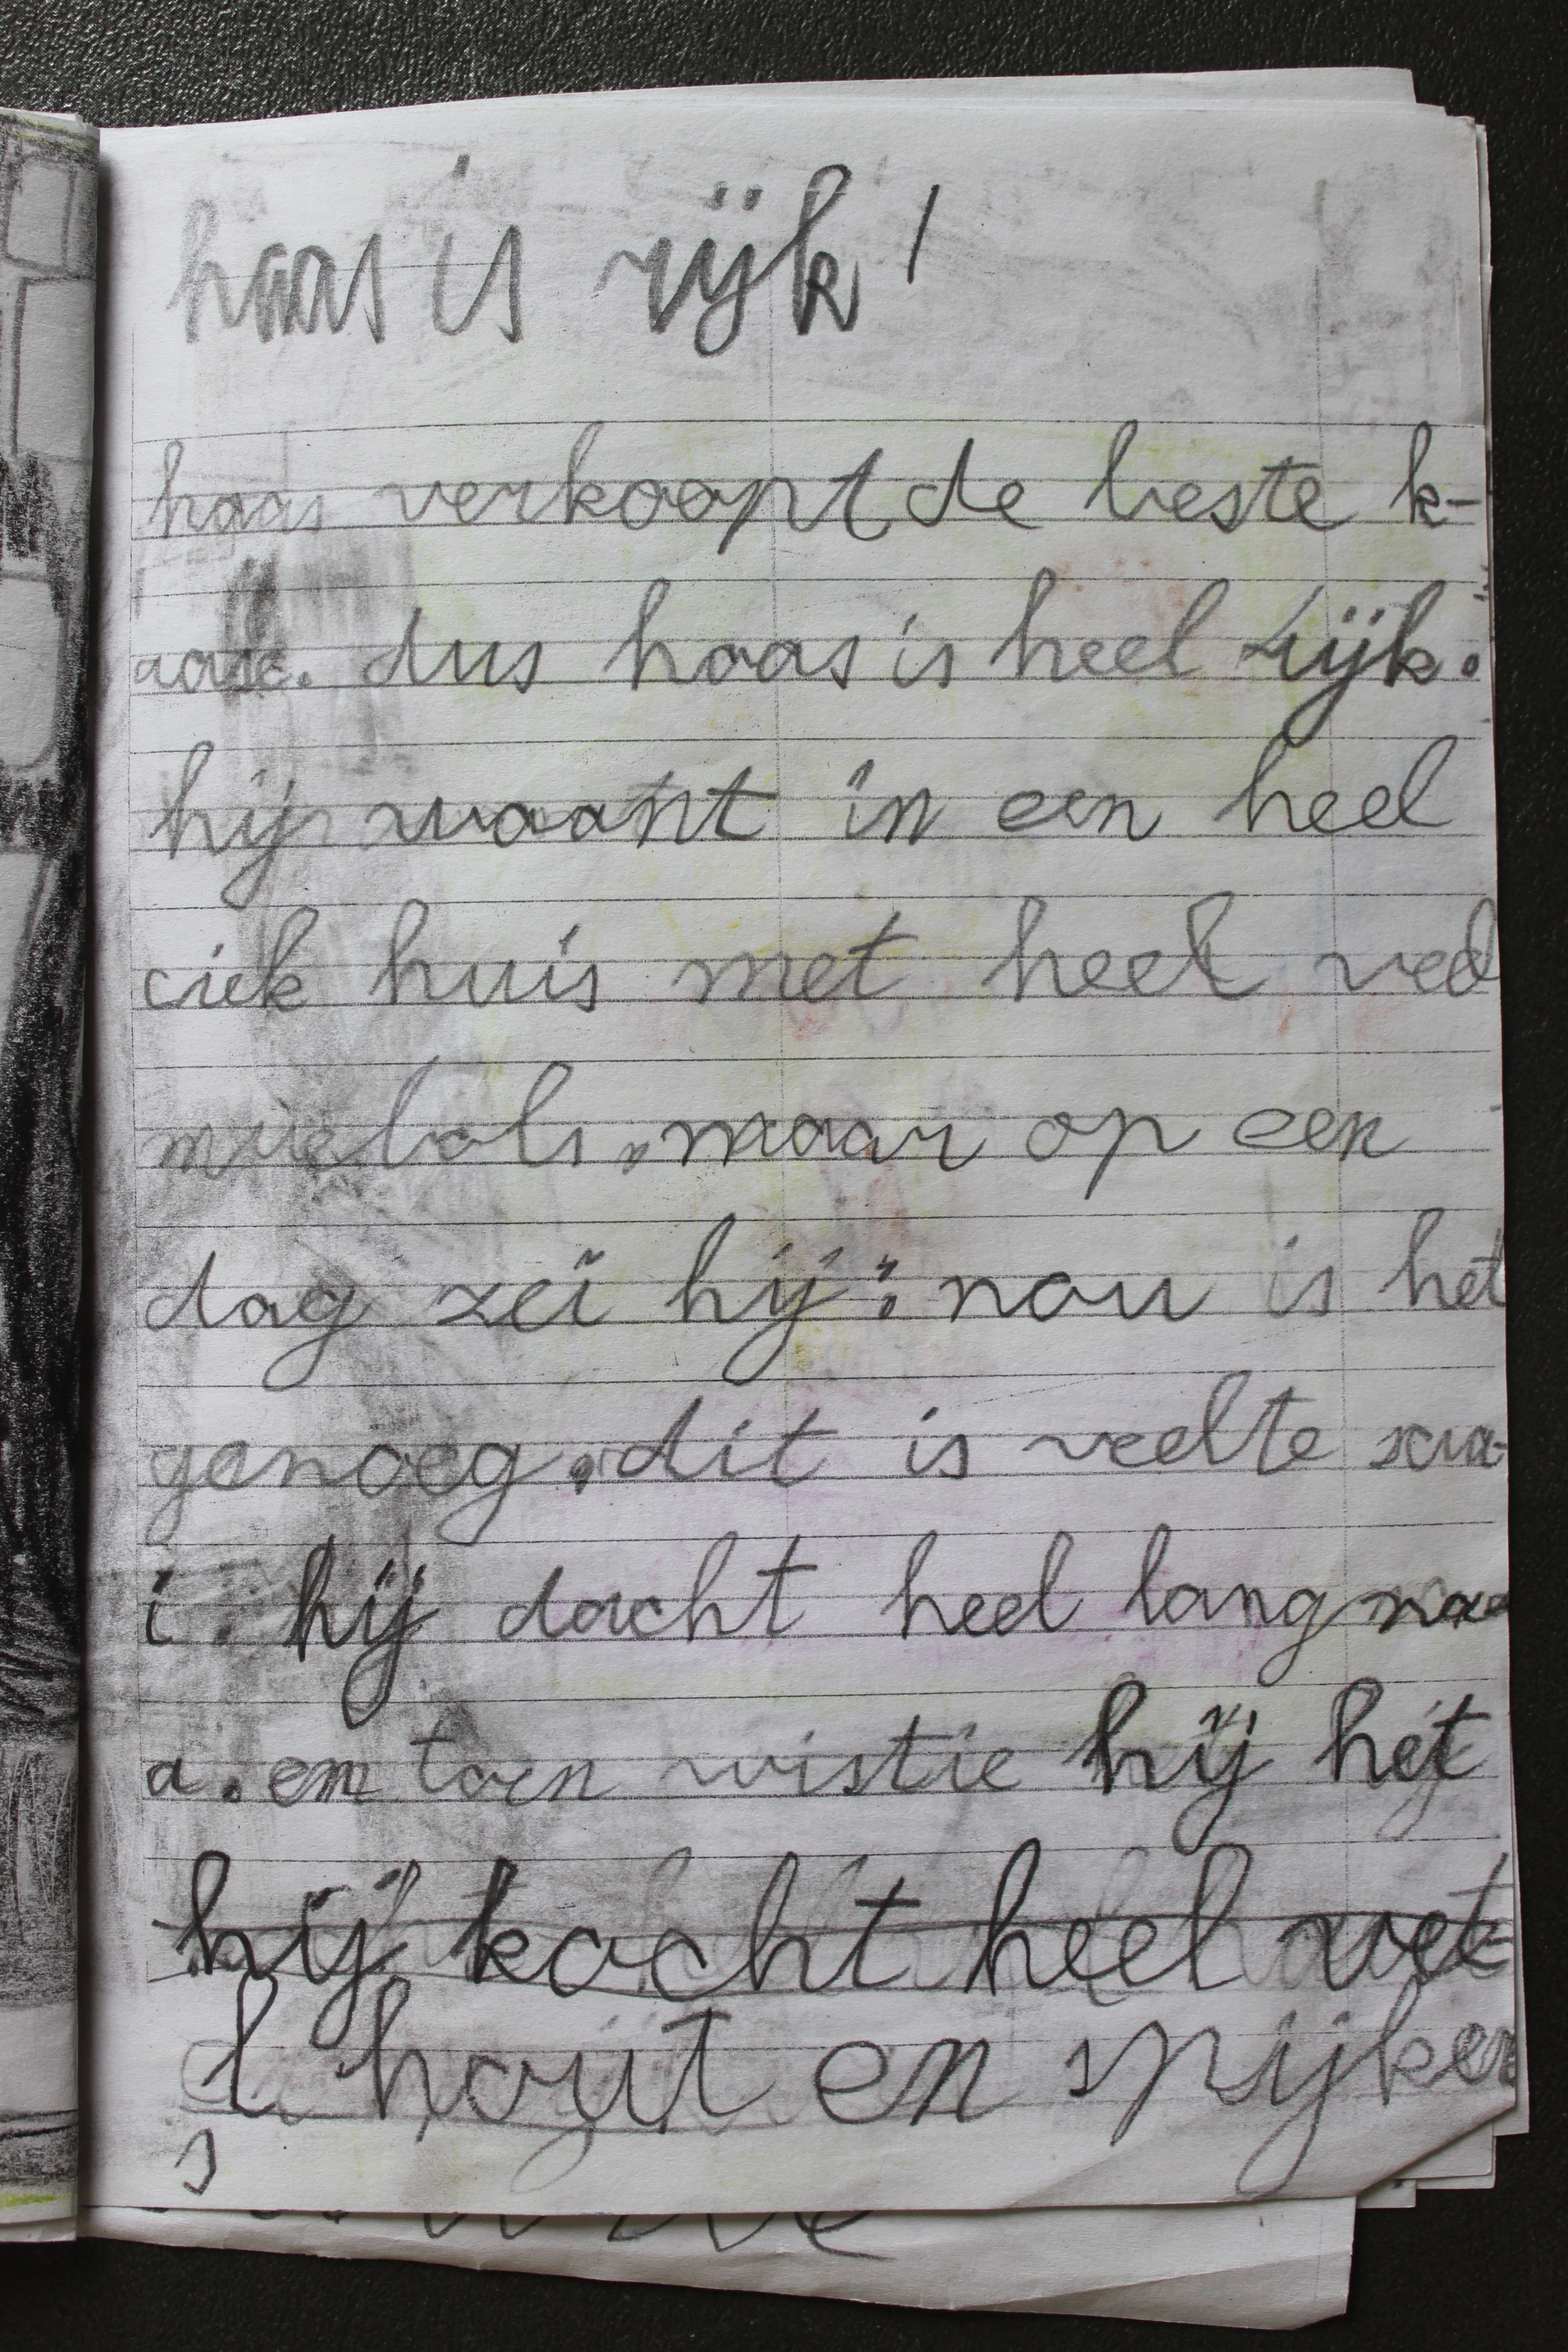 haas is rijk!
haas verkoopt de beste k-
aas. dus haas is heel rijk.
hij woont in een heel
ciek huis met heel veel
miebols. maar op een
dag zei hij: nou is het
genoeg. dit is veel te saa-
i. hij dacht heel lang na
a. en toen wistie hij het
hij kocht heel vee-
l hout en spijker
s